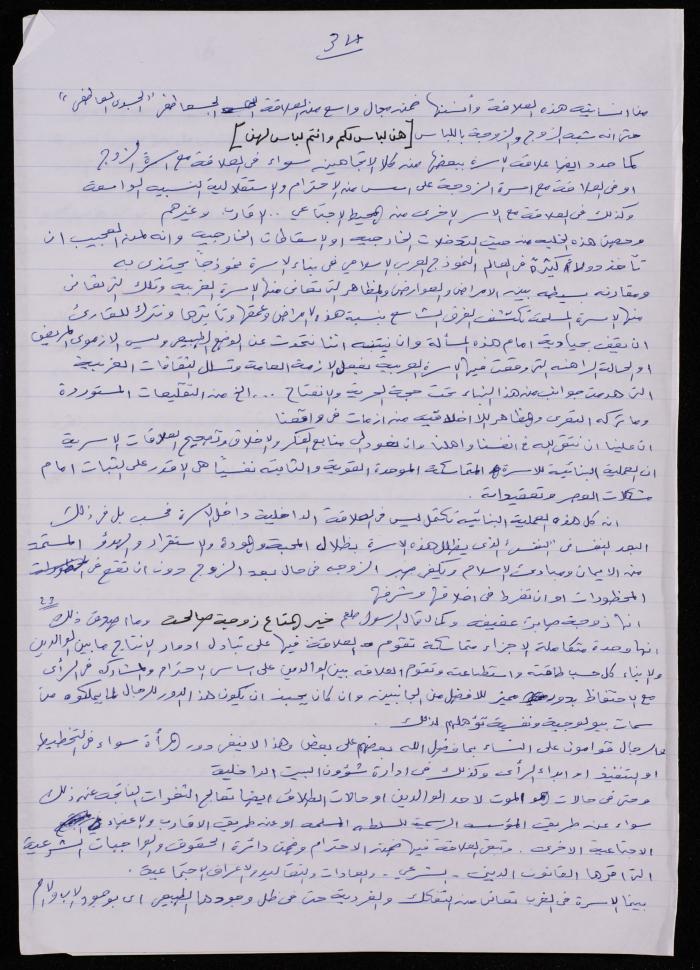 34
من انسانية هذه العلاقة وأنسنتها ضمن مجال واسع من العلاقة العاطفي "الجسدي العاطفي"
حتى انه شبه الزوج والزوجة باللباس [هن لباس لكم وانتم لباس لهن]
كما حدد ايضا علاقة الاسرة ببعضها ضمن كلا الاتجاهين سواء في العلاقة مع اسرة الزوج
او في العلاقة مع اسرة الزوجة على اسس من الاحترام والاستقلالية النسبية الواسعة
وكذلك في العلاقة مع الاسر الاخرى من المحيط الاجتماعي .. الاقارب وغيرهم
وحصن هذه الخلية من حيث التدخلات الخارجية او الاسقاطات الخارجية وانه لمن العجيب ان
تأخذ دولا كثيرة في العالم النموذج العربي الاسلامي في بناء الاسرة نموذجاً يحتذى به
ومقارنة بسيطة بين الامراض والعوارض والمظاهر التي تعاني منها الاسرة الغربية وتلك التي تعاني
منها الاسرة المسلمة تكتشف الفرق الشاسع بنسبة هذه الامراض وعمقها وتأثيرها ونترك للقارئ
ان يقف بحيادية امام هذه المسألة وان ينتبه اننا نتحدث عن الوضع الطبيعي وليس الازموي المريض
او الحالة الراهنة التي وقعت فيها الاسرة العربية بفعل الازمة العامة وتسلل الثقافات الغربية
التي هدمت جوانب من هذا البناء تحت حجة الحرية والانفتاح ... الخ من التقليعات المستوردة
وما تركه التعري والمظاهر اللااخلاقية من ازمات في واقعنا
ان علينا ان نتقي الله في انفسنا واهلنا وان نعود الى منابع الفكر والاخلاق وتصحيح العلاقات الاسرية
ان العملية البنائية للاسرة المتماسكة الموحدة القوية والثابتة نفسياً هي الاقدر على الثبات امام
مشكلات العصر وتعقيداته .
انه كل هذه العملية البنائية تكتمل ليس في العلاقة الداخلية داخل الاسرة فحسب بل في ذلك
البعد النفساني "النفسي" الذي يظلل هذه الاسرة بظلال المحبة والمودة والاستقرار والهدوء المستمد
من الايمان ومبادئ الاسلام ويكفي صبر الزوجة في حال بعد الزوج دون ان تقع في
المحظورات او ان تفرط في اخلاقها وشرفها
انها زوجة صابرة عفيفة وكما قال الرسول صلعم خير المتاع زوجة صالحة وما اصدق ذلك
انها وحدة متكاملة الاجزاء متماسكة تقوم العلاقة فيها على تبادل ادوار الانتاج ما بين الوالدين
والابناء كل حسب طاقته واستطاعته وتقوم العلاقة بين الوالدين على اساس الاحترام والمشاركة في الرأي
مع الاحتفاظ بدور مميز للافضل من الجانبين وان كان يحبذ ان يكون هذا الدور للرجال لما يملكوه من
سمات بيولوجية ونفسية تؤهلهم لذلك .
فالرجال قوامون على النساء بما فضل الله بعضهم على بعض وهذا لا ينفي دور المرأة سواء في التخطيط
او التنفيذ او ابداء الرأي وكذلك في ادارة شؤون البيت الداخلية
وحتى في حالات الموت لاحد الوالدين او حالات الطلاق ايضا تعالج الثغرات الناتجة عن ذلك
سواء عن طريق المؤسسة الرسمية للسلطة المسلمة او عن طريق الاقارب
الاجتماعية الاخرى . وتبقى العلاقة فيها ضمن الاحترام وضمن دائرة الحقوق والواجبات الشرعية
التي اقرها القانون الديني - الشرعي - والعادات والتقاليد والاعراف الاجتماعية .
بينما الاسرة في الغرب تعاني من التفكك والفردية حتى في ظل وجودها الطبيعي اي بوجود الاب والام